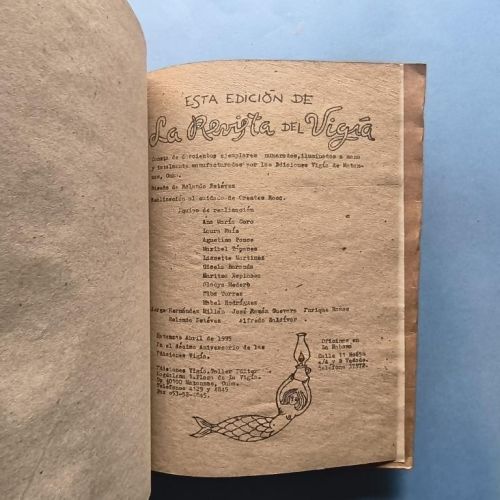 ESTA EDICIÓN DE
La Revista DEL Vigía
Consta de doscientos ejemplares numerados,iluminados a mano
y totalmente manufacturados por las Ediciones Vigía de Matan-
zas, Cuba.
Diseño de Rolando Estévez
Realización al cuidado de Orestes
Equipo de realización
Ana María Caro
Laura Ruíz
Agustina Ponce
Maribel
Lissette Martínez
Gisela
Maritza Espinosa
Gladys Mederb
Elba Torres
Mabel Rodríguez
Jorge Hernández Milián José Ramón Guevara Enrique
Rolando Estévez Alfredo Zaldívar
Matanzas Abril de 1995
En el décimo Aniversario de las
Ediciones Vigía.
Ediciones Vigía.Taller Editor
Magdalena 1.Plaza de la Vigía.
Zp 40100 Matanzas, Cuba.
Teléfonos 4129 y 4845
Fax 053-52-
Oficinas en
La Habana
Calle 11
e/4 y 6 Vedado
Teléfono